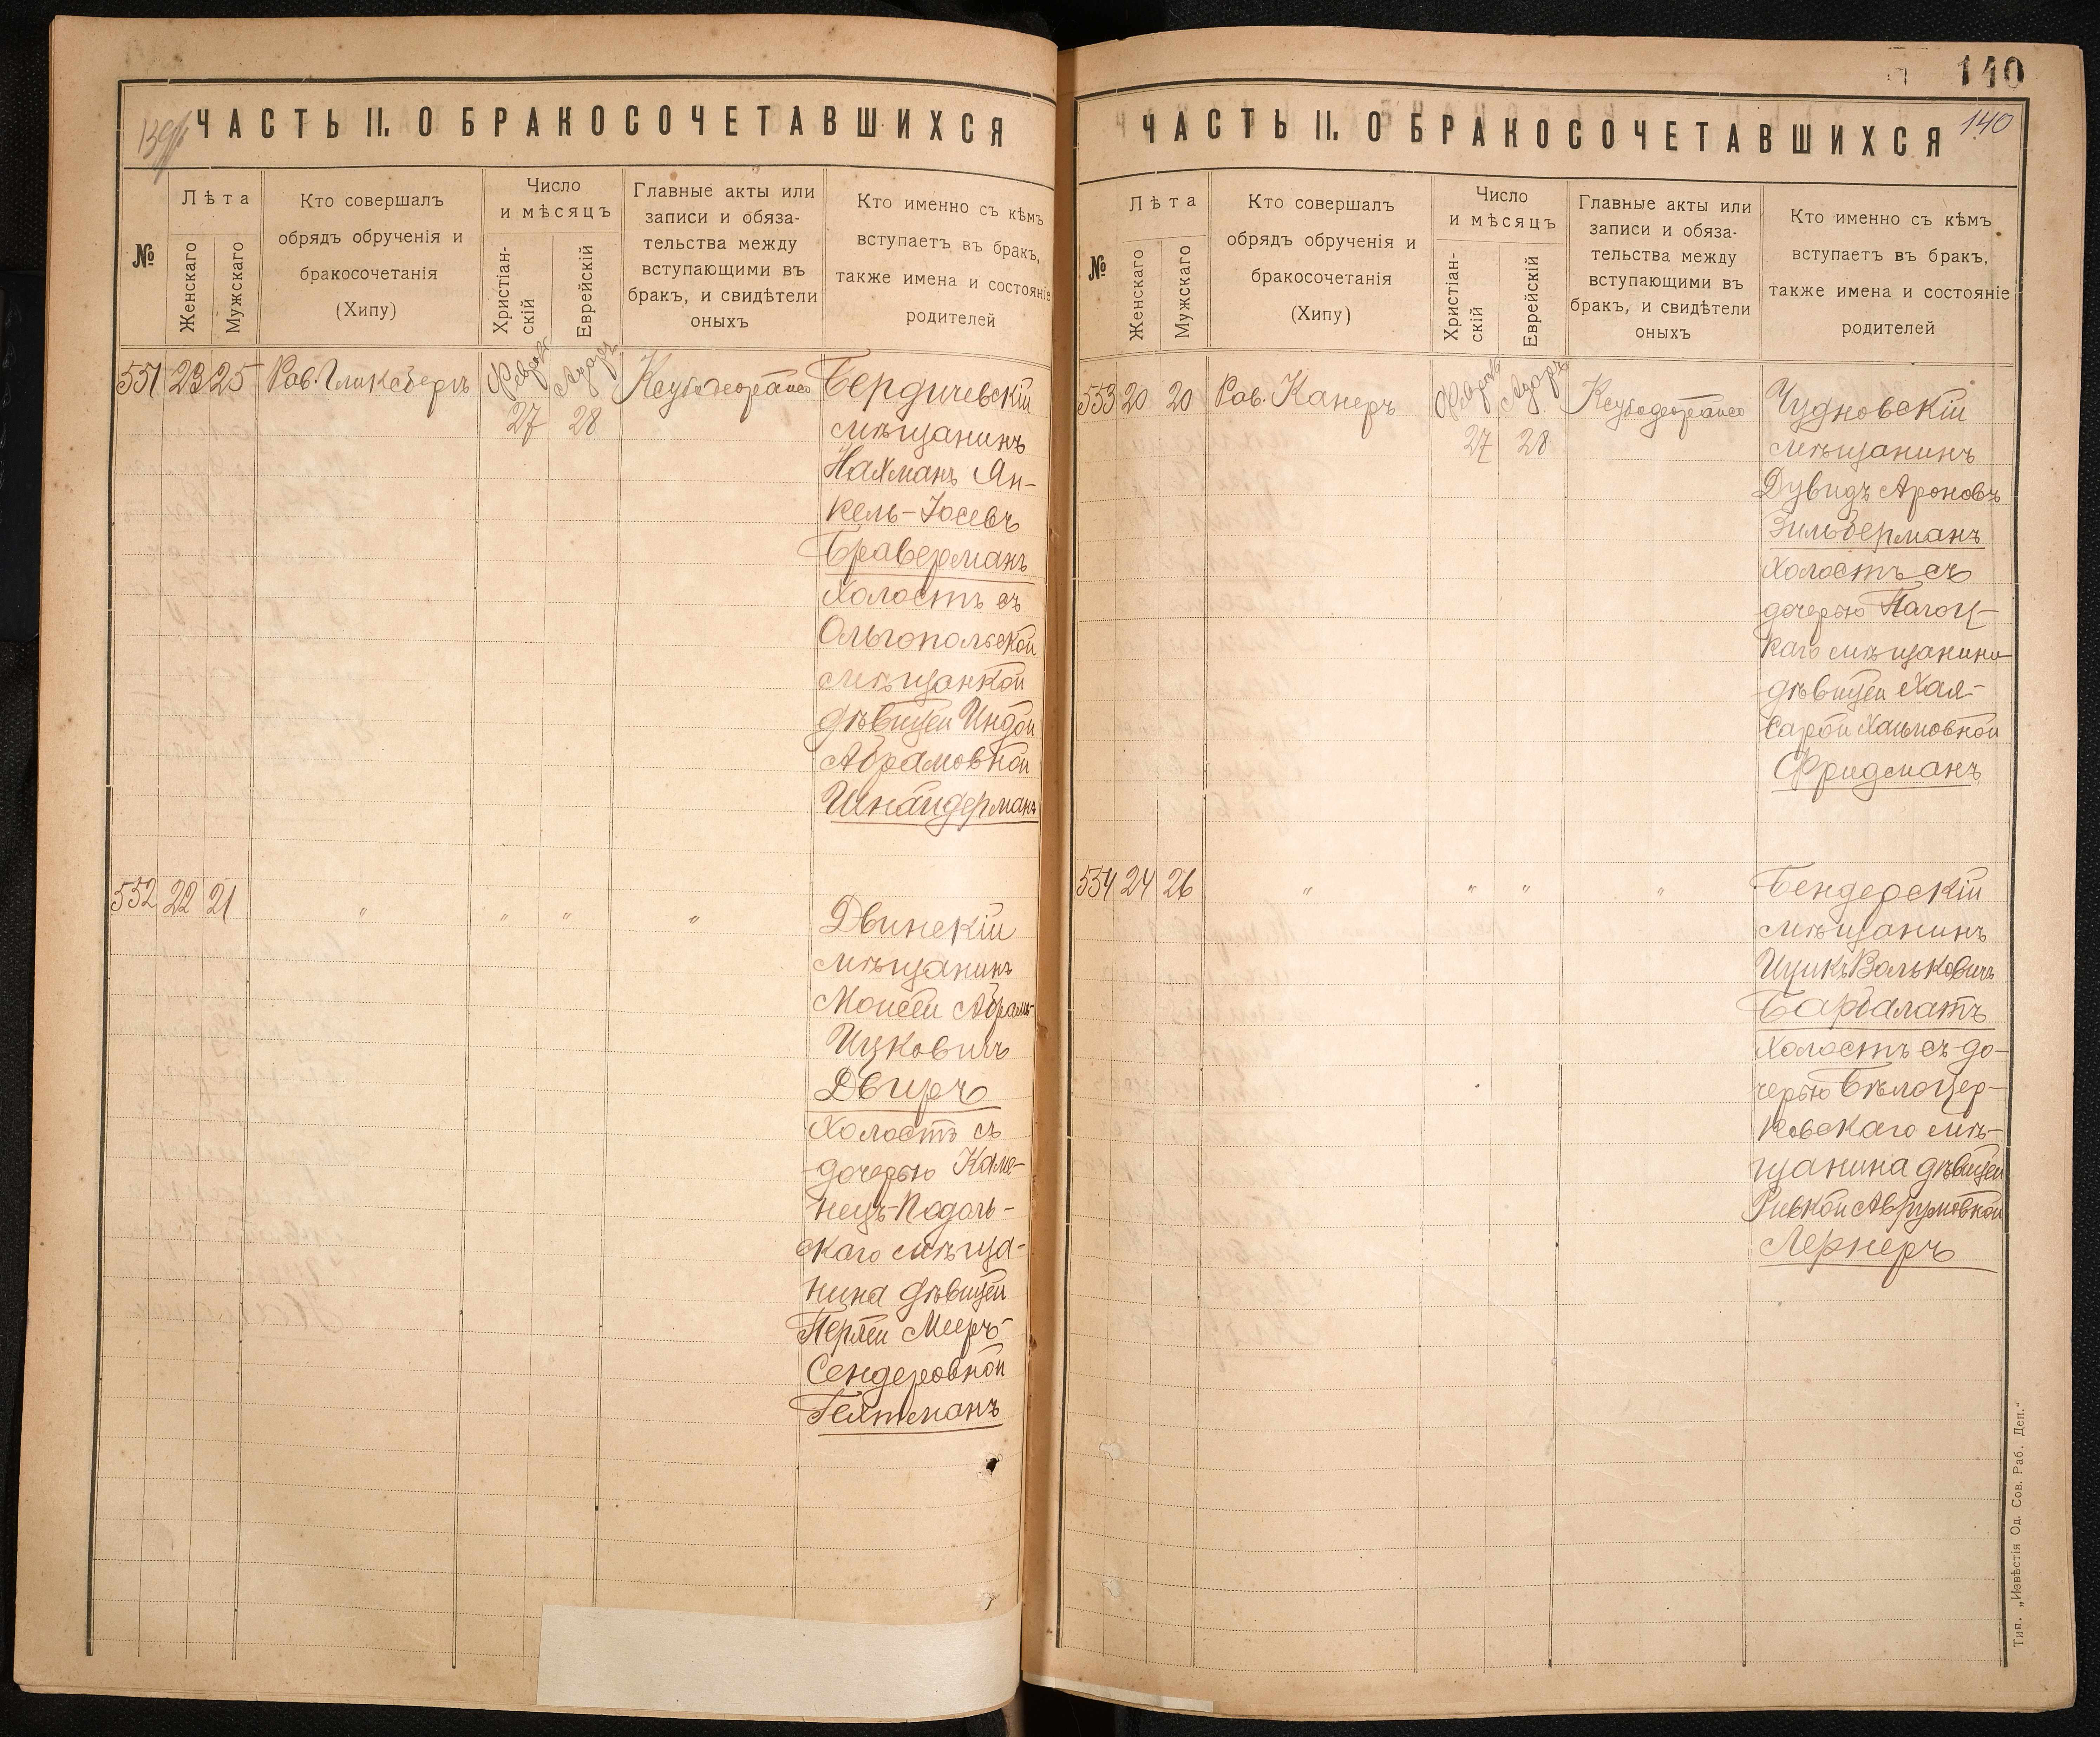 139
ЧАСТЬ II. О БРАКОСОЧЕТАВШИХСЯ
№
Лѣта
Женскаго
Мужскаго
Кто совершалъ
обрядъ обрученія и
бракосочетанія
(Хипу)
Число
и мѣсяцъ
Христіан-
скій
Еврейскій
Главные акты или
записи и обяза-
тельства между
вступающими въ
бракъ, и свидѣтели
оныхъ
Кто именно съ кѣмъ
вступаетъ въ бракъ,
также имена и состояніе
родителей
551 23 25 Рав. Гликсбергъ Февраль 27 Адаръ 28
Бердичевскій
мѣщанинъ
Нахманъ Ян-
кель-Іосевъ
Браверманъ
холостъ съ
Ольгопольской
мѣщанкой
дѣвицей Индой
Абрамовной
Шнайдерманъ
552 22 21 " " " "
Двинскій
мѣщанинъ
Моисей Абрамъ-
Ицковичъ
Двиръ
холостъ съ
дочерью Каме-
нецъ-Подоль-
скаго мѣща-
нина дѣвицей
Перлей Мееръ-
Сендеровной
Гехтманъ
140
ЧАСТЬ II. О БРАКОСОЧЕТАВШИХСЯ
140
№
Лѣта
Женскаго
Мужскаго
Кто совершалъ
обрядъ обрученія и
бракосочетанія
(Хипу)
Число
и мѣсяцъ
Христіан-
скій
Еврейскій
Главные акты или
записи и обяза-
тельства между
вступающими въ
бракъ, и свидѣтели
оныхъ
Кто именно съ кѣмъ
вступаетъ въ бракъ,
также имена и состояніе
родителей
553 20 20 Рав. Канеръ Февраль 27 Адаръ 28
Чудновскій
мѣщанинъ
Дувидъ Ароновъ
Зильберманъ
холостъ съ
дочерью
каго мѣщанина
дѣвицей Хая-
Сарой Хаимовной
Фридманъ
554 24 26 " " " "
Бендерскій
мѣщанинъ
Ицикъ Вольковичъ
холостъ съ до-
черью Бѣлоцер-
ковскаго мѣ-
щанина дѣвицей
Ривкой Аврумовной
Лернеръ
Тип. „Извѣстія Од. Сов. Раб. Деп.“